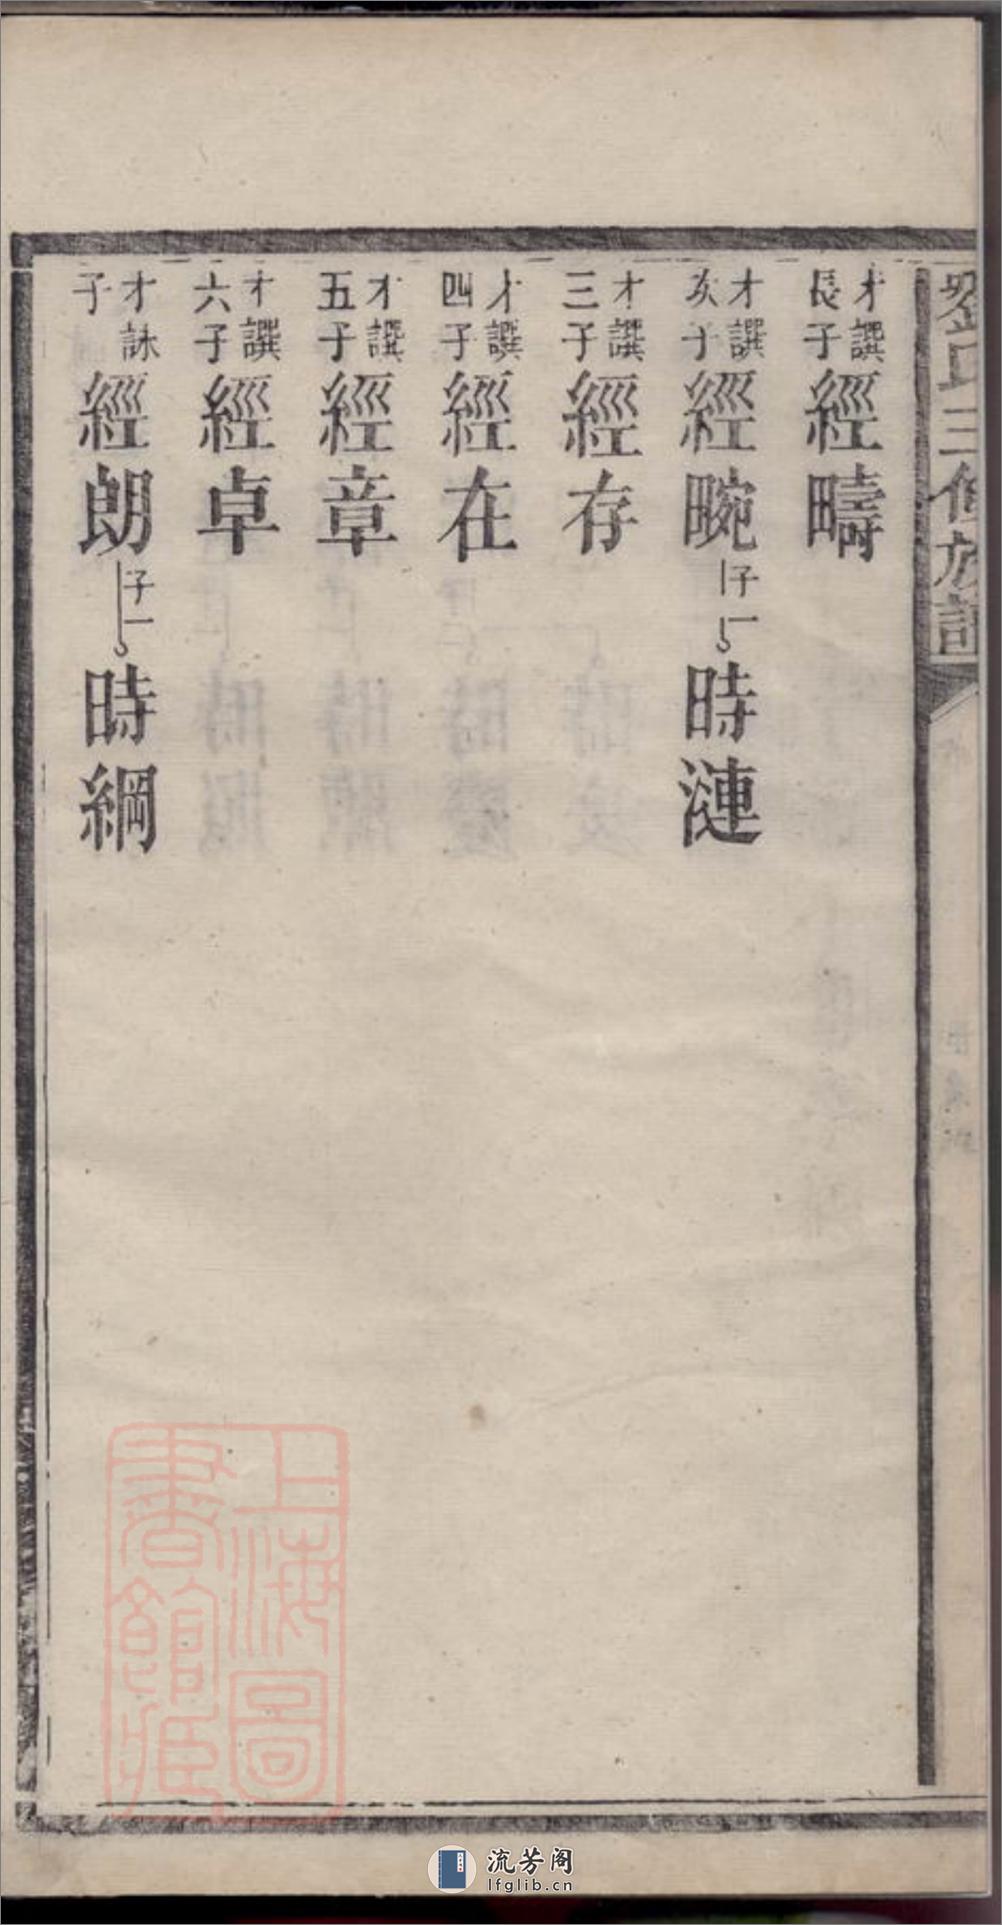 劉氏三修族譜
才譔長子 經疇
才譔次子 經畹 子一 時漣
才譔三子 經存
才譔四子 經在
才譔五子 經章
才譔六子 經卓
才詠子 經朗 子一 時綱
上海圖書館藏
流芳阁
lfglib.cn